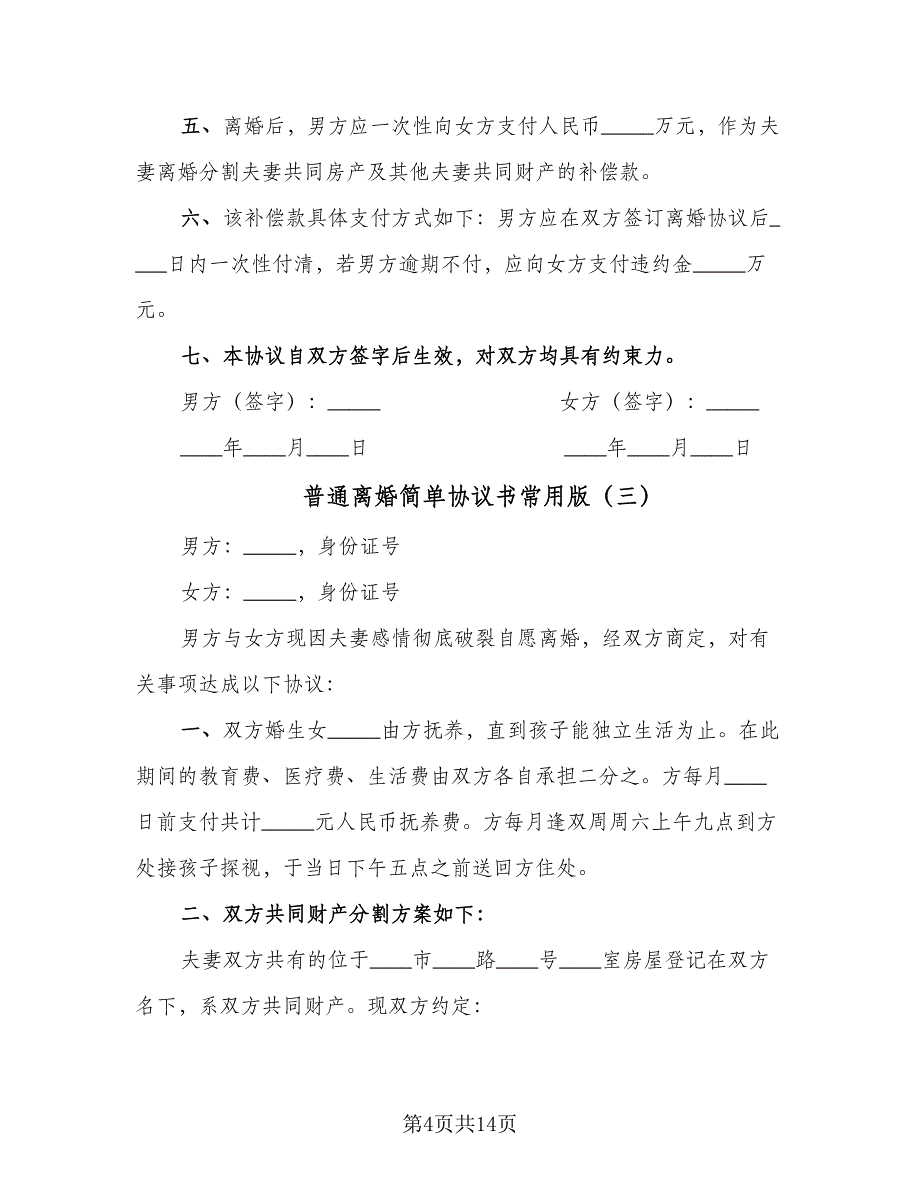 五、离婚后，男方应一次性向女方支付人民币_____万元，作为夫
妻离婚分割夫妻共同房产及其他夫妻共同财产的补偿款。
六、该补偿款具体支付方式如下：男方应在双方签订离婚协议后_
___日内一次性付清，若男方逾期不付，应向女方支付违约金_____万
元。
七、本协议自双方签字后生效，对双方均具有约束力。
男方（签字）：_____ 女方（签字）：_____
____年____月____日 ____年____月____日
普通离婚简单协议书常用版（三）
男方：_____，身份证号
女方：_____，身份证号
男方与女方现因夫妻感情彻底破裂自愿离婚，经双方商定，对有
关事项达成以下协议：
一、双方婚生女_____由方抚养，直到孩子能独立生活为止。在此
期间的教育费、医疗费、生活费由双方各自承担二分之。方每月____
日前支付共计_____元人民币抚养费。方每月逢双周周六上午九点到方
处接孩子探视，于当日下午五点之前送回方住处。
二、双方共同财产分割方案如下：
夫妻双方共有的位于____市____路____号____室房屋登记在双方
名下，系双方共同财产。现双方约定：
第4页共14页